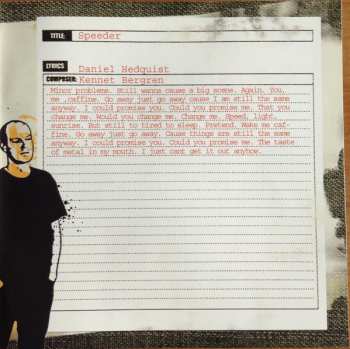 TITLE: Speeder
LYRICS Daniel Hedquist
COMPOSER: Kennet Bergren
Minor problems. Still wanna cause a big scene. Again. You,
me ,caffine. Go away just go away cause I am still the same
anyway. I could promise you. Could you promise me. That you
change me. Would you change me. Change me. Speed, light,
sunrise. But still to tired to sleep. Pretend. Make me caf-
fine. Go away just go away. Cause things are still the same
anyway. I could promise you. Could you promise me. The taste
of metal in my mouth. I just cant get it out anyhow.